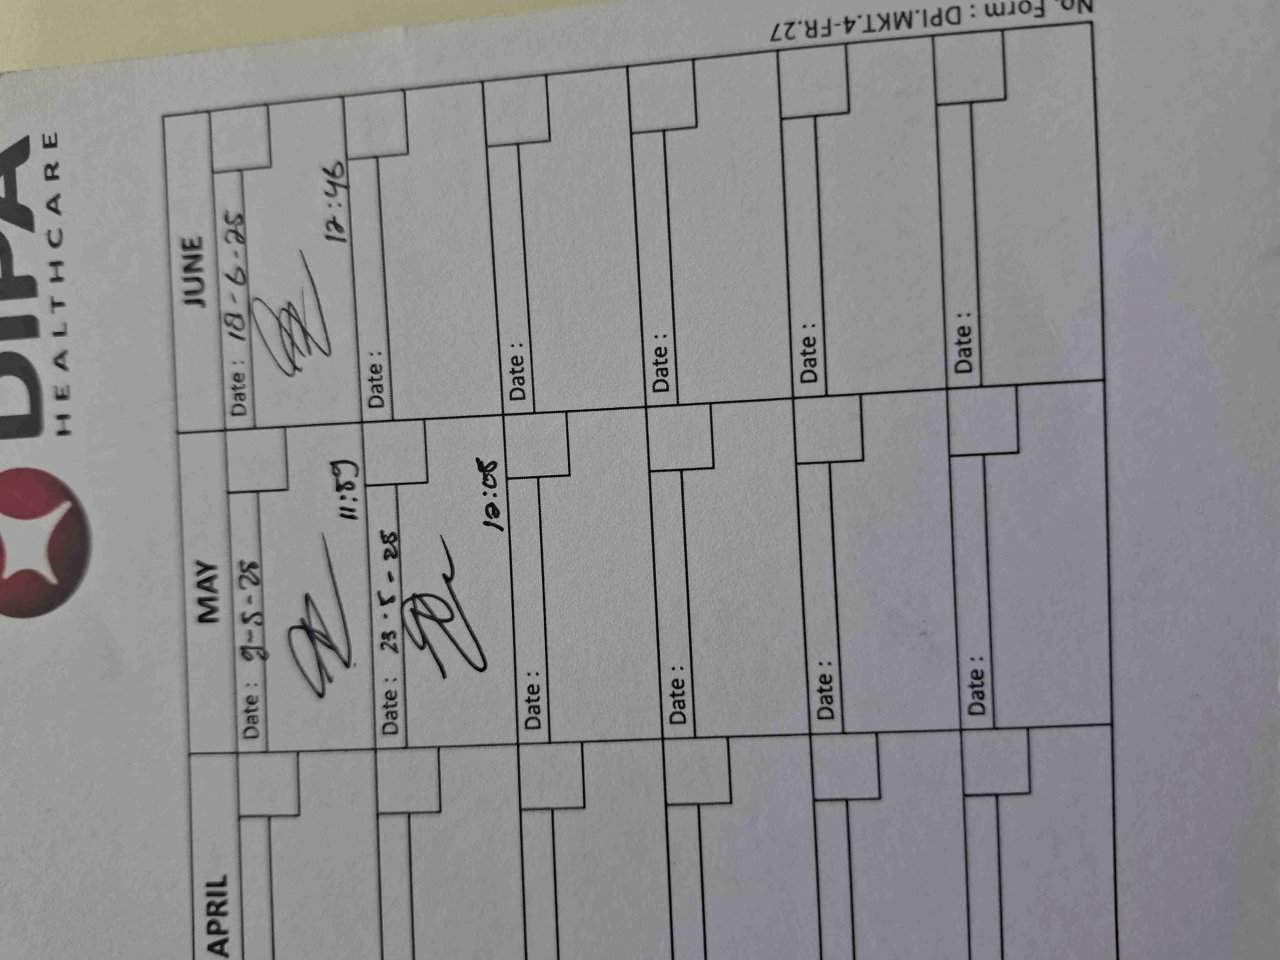 DIPA
HEALTHCARE
APRIL
MAY
JUNE
Date : 9-5-25
11:59
Date : 18-6-25
12:46
Date : 23-5-25
12:05
Date :
Date :
Date :
Date :
Date :
Date :
Date :
Date :
Date :
No. Form : DPI.MKT.4-FR.27